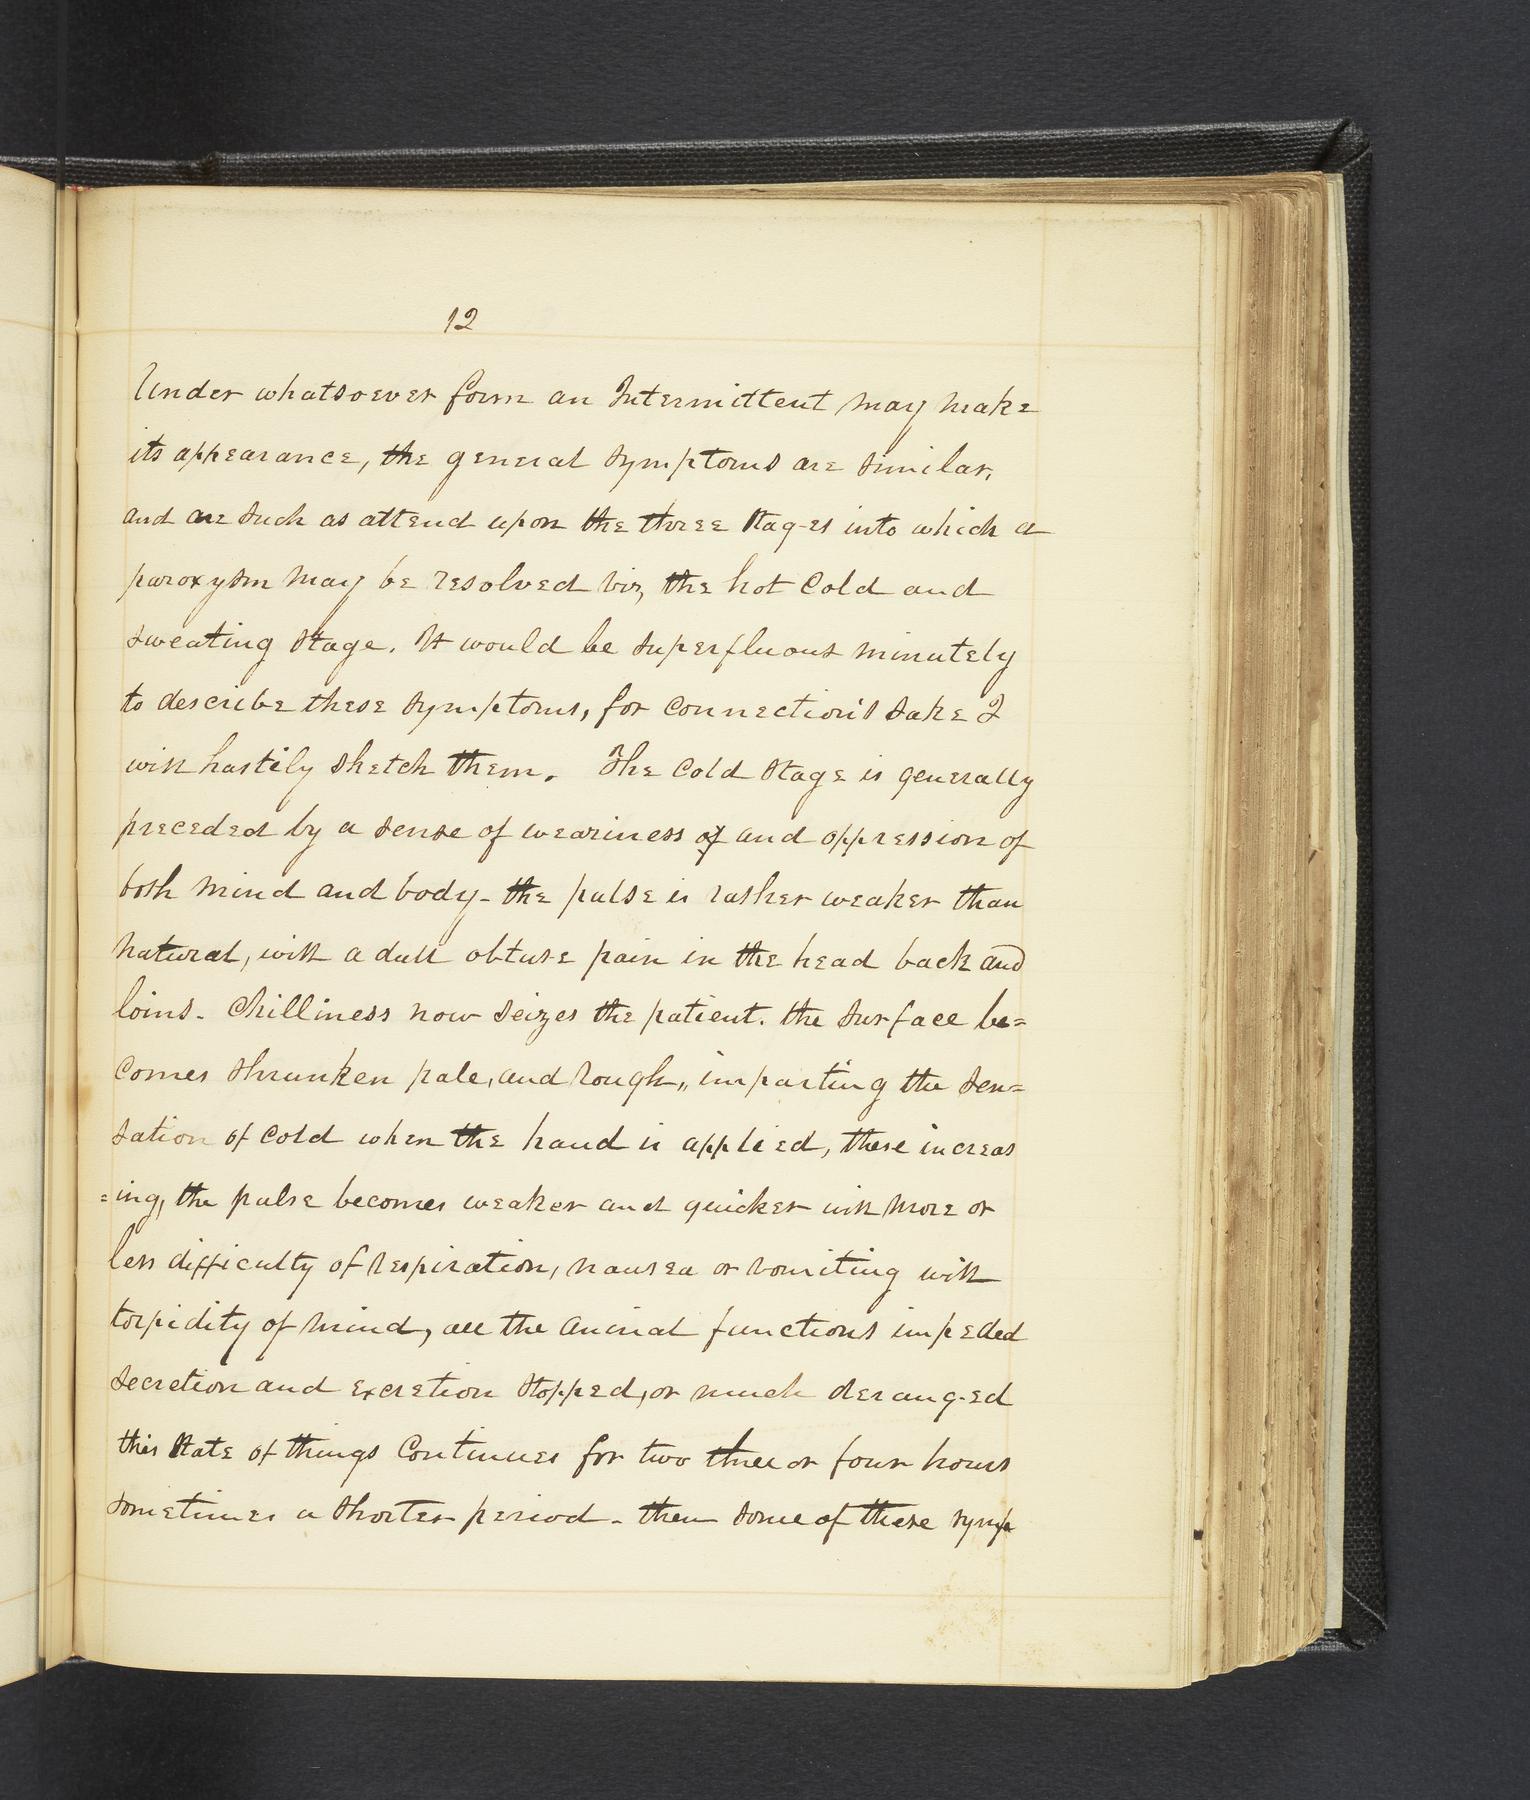 12
Under whatsoever form an Intermittent may make
its appearance, the general symptoms are similar,
and are such as attend upon the three stages into which a
paroxysm may be resolved viz, the hot cold and
sweating stage. It would be superfluous minutely
to describe these symptoms, for connection's sake I
will hastily sketch them. The cold stage is generally
preceded by a sense of weariness of and oppression of
both mind and body - the pulse is rather weaker than
natural, with a dull obtuse pain in the head back and
loins - Chilliness now seizes the patient. the surface be=
comes shrunken pale, and rough,, imparting the sen=
sation of cold when the hand is applied, these increas
=ing, the pulse becomes weaker and quicker with more or
less difficulty of respiration, nausea or vomiting with
torpidity of mind, all the animal functions impeded
secretion and excretion stopped, or much deranged
this state of things continues for two three or four hours
sometimes a shorter period - then some of these symp